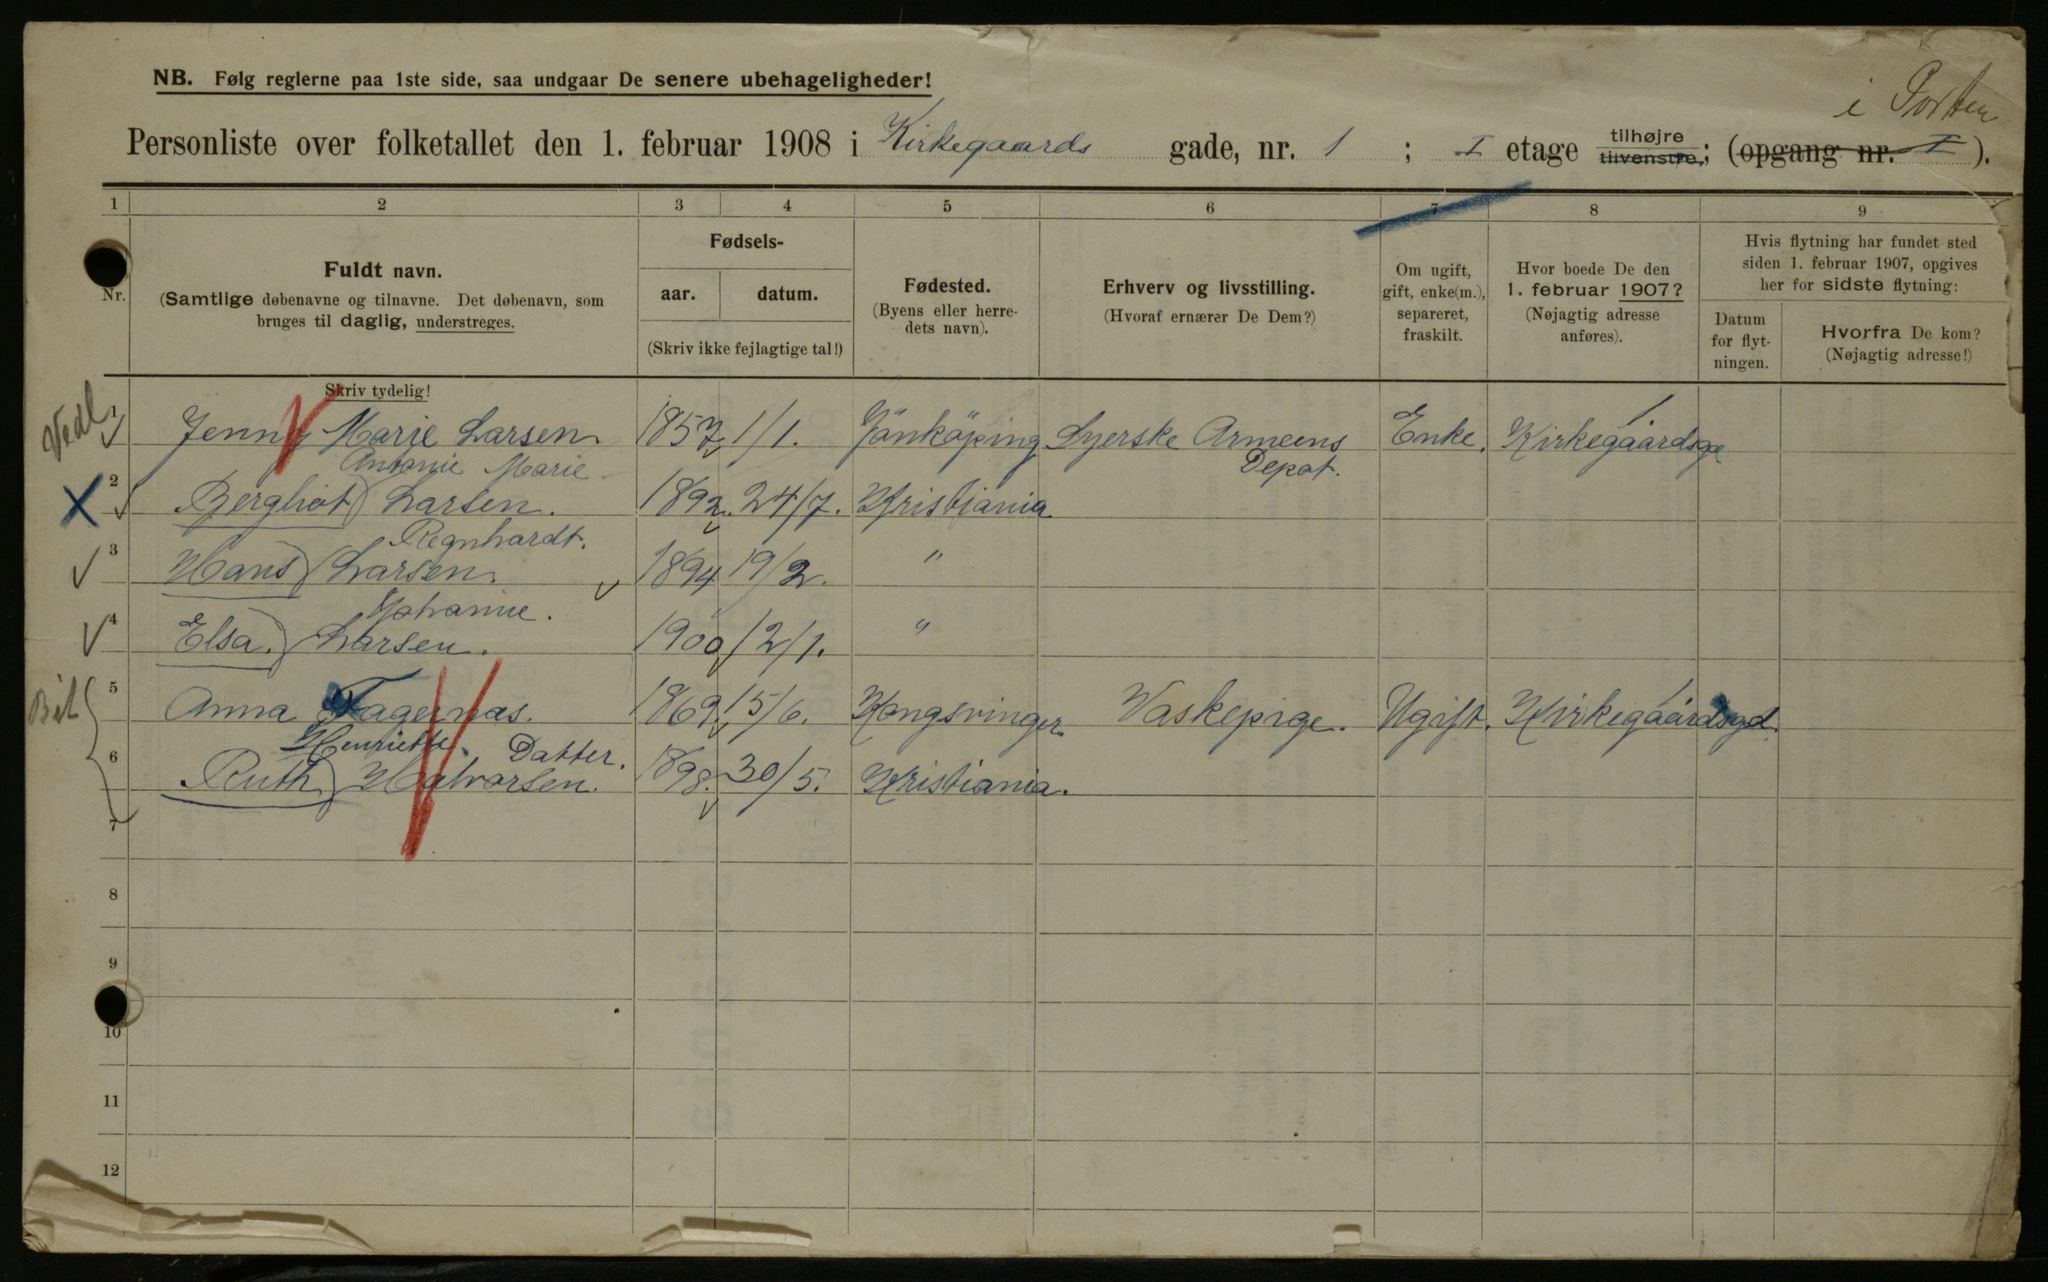 NB. Følg reglerne paa 1ste side, saa undgaar De senere ubehageligheder!
i Porten
Personliste over folketallet den 1. februar 1908 i Kirkegaards gade, nr. 1 ; I etage tilhøjre tilvenstre; (opgang nr. I ).
1 2 3 4 5 6 7 8 9
Nr.
Fuldt navn.
(Samtlige døbenavne og tilnavne. Det døbenavn, som
bruges til daglig, understreges.
Fødsels-
aar. datum.
(Skriv ikke fejlagtige tal!)
Fødested.
(Byens eller herre-
dets navn).
Erhverv og livsstilling.
(Hvoraf ernærer De Dem?)
Om ugift,
gift, enke(m.),
separeret,
fraskilt.
Hvor boede De den
1. februar 1907?
(Nøjagtig adresse
anføres).
Hvis flytning har fundet sted
siden 1. februar 1907, opgives
her for sidste flytning:
Datum
for flyt-
ningen.
Hvorfra De kom?
(Nøjagtig adresse!)
Skriv tydelig!
1 Jenny Marie Larsen 1857 1/1. Jönköping Syerske Armeens Enke. Kirkegaardsge 1
Depot.
Antonie Marie.
2 Bergliot) Larsen. 1892. 24/7. Kristiania
Regnhardt.
3 Hans) Larsen. 1894 19/2. "
Johanne.
4 Elsa.) Larsen. 1900 12/1. "
5 Anna Fagernas. 1869. 15/6. Kongsvinger. Vaskepige. Ugift. Kirkegaardsgd. 1
Henriette. Datter.
6 Ruth) Halvorsen. 1898. 30/5. Kristiania.
7
8
9
10
11
12